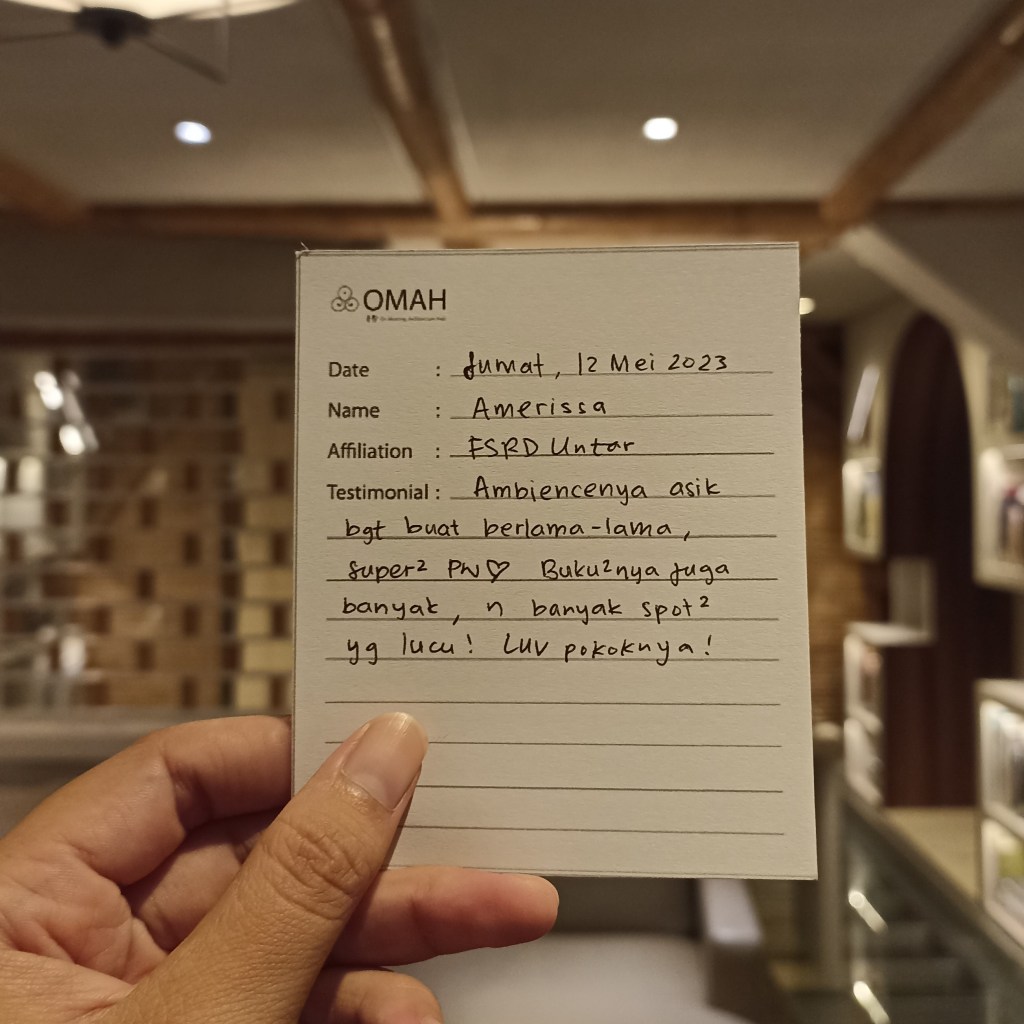 OMAH
Date : Jumat, 12 Mei 2023
Name : Amerissa
Affiliation : FSRD Untar
Testimonial : Ambiencenya asik
bgt buat berlama-lama,
super² PW♡ Buku²nya juga
banyak, n banyak spot²
yg lucu! LUV pokoknya!